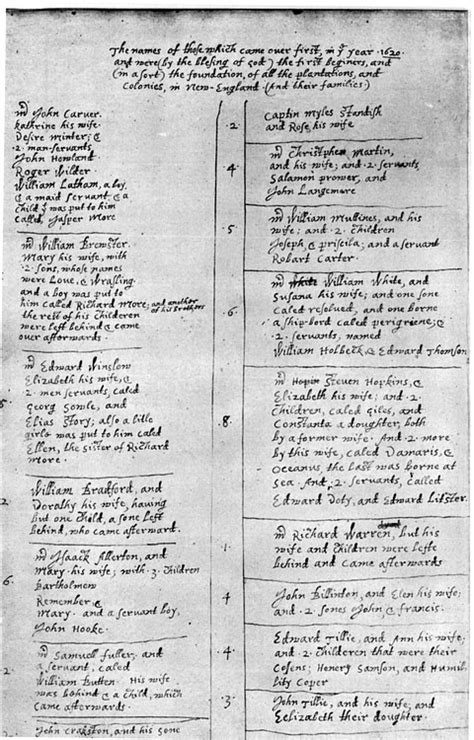 The names of those which came over first, in yͤ year .1620.
and were (by the blesing of god) the first beginers, and
(in a sort) the foundation, of all the plantations, and
Colonies, in New-England. (And their families)
mr John Carver.
kathrine his wife.
Desire minter; &
.2. man-servants
John Howland
Roger Wilder.
William Latham, a boy,
& a maid servant. & a
child yͭ was put to him
called, Jasper More
mr William Brewster.
Mary his wife, with
.2. sons, whose names
were Love, & Wrasling.
and a boy was put to
him called Richard More; and another
of his brothers
the rest of his children
were left behind & came
over afterwards.
mr Edward Winslow
Elizabeth his wife, &
.2. men servants, caled
Georg Sowle, and
Elias Story; also a litle
girle was put to him caled
Ellen, the sister of Richard
More.
William Bradford, and
Dorathy his wife, having
but one child, a sone left
behind, who came afterward.
mr Isaack Allerton, and
Mary his wife; with .3. children
Bartholmew
Remember, &
Mary. and a servant boy,
John Hooke.
6.
mr Samuell fuller; and
a servant, caled
William Butten. His wife
was behind & a child, which
came afterwards.
2.
John Crakston, and his sone
.2
Captin Myles Standish
and Rose his wife
.4
mr Christpher Martin,
and his wife; and .2. servants,
Salamon prower, and
John Langemore
.5.
mr William Mullines, and his
wife; and .2. children
Joseph, & priscila; and a servant
Robart Carter.
.6.
mr William White, and
Susana his wife; and one sone
caled resolved, and one borne
a ship-bord caled perigriene; &
.2. servants, named
William Holbeck, & Edward Thomson
.8.
mr Steven Hopkins, &
Elizabeth his wife; and .2.
children, caled Giles, and
Constanta a doughter, both
by a former wife. And .2. more
by this wife, caled Damaris, &
Oceanus, the last was borne at
sea. And .2. servants, called
Edward Doty, and Edward Litster.
.1.
mr Richard Warren, but his
wife and children were lefte
behind and came afterwards
.4
John Billinton, and Elen his wife;
and .2. sones John & Francis.
.4.
Edward Tillie, and Ann his wife;
and .2. children that were their
Cosens; Henery Samson, and Humil-
lity Coper
.3.
John Tillie, and his wife; and
Eelizabeth their doughter.